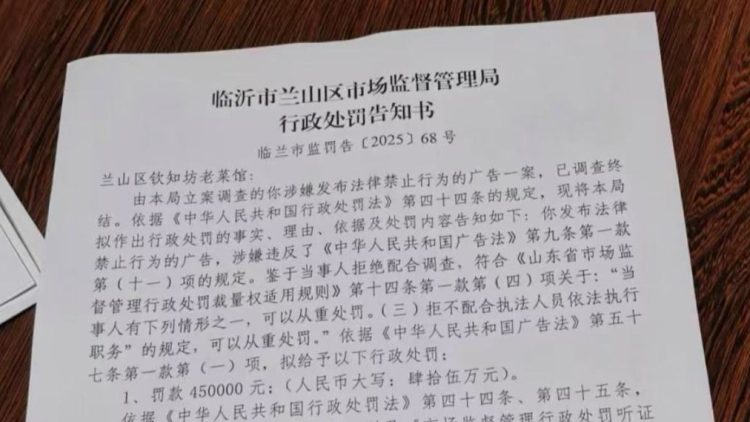 临沂市兰山区市场监督管理局
行政处罚告知书
临兰市监罚告〔2025〕68号
兰山区钦知坊老菜馆：
由本局立案调查的你涉嫌发布法律禁止行为的广告一案，已调查终
结。依据《中华人民共和国行政处罚法》第四十四条的规定，现将本局
拟作出行政处罚的事实、理由、依据及处罚内容告知如下：你发布法律
禁止行为的广告，涉嫌违反了《中华人民共和国广告法》第九条第一款
第（十一）项的规定。鉴于当事人拒绝配合调查，符合《山东省市场监
督管理行政处罚裁量权适用规则》第十四条第一款第（四）项关于：“当
事人有下列情形之一，可以从重处罚。（三）拒不配合执法人员依法执行
职务”的规定，可以从重处罚。”依据《中华人民共和国广告法》第五十
七条第一款第（一）项，拟给予以下行政处罚：
1、罚款450000元；（人民币大写：肆拾伍万元）。
依据《中华人民共和国行政处罚法》第四十四条、第四十五条，
市场监督管理行政处罚听证